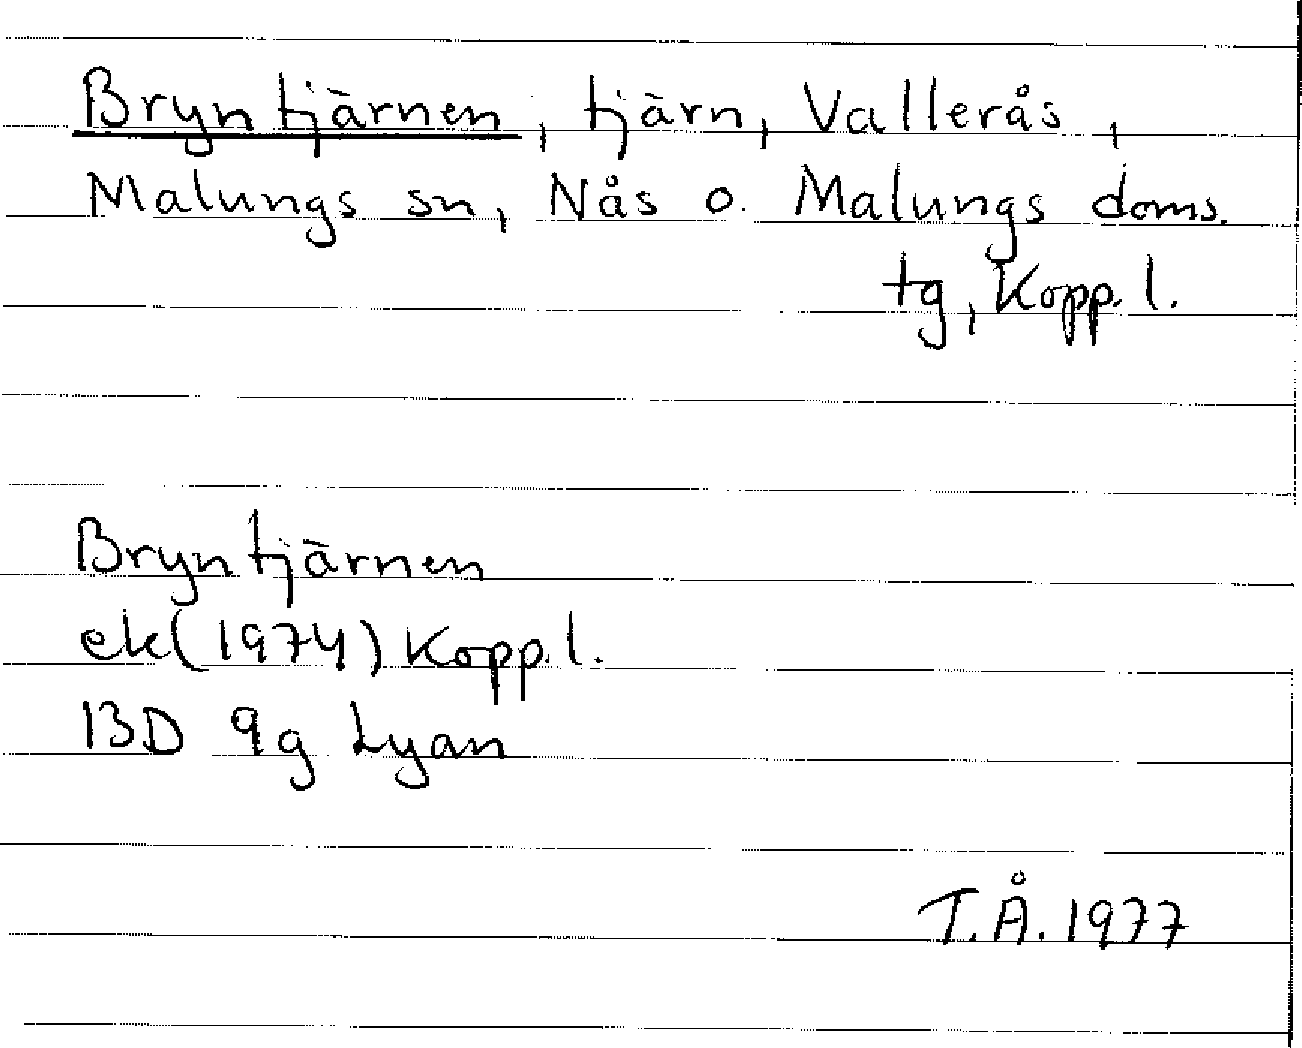 Bryntjärnen, tjärn, Vallerås,
Malungs sn, Nås o. Malungs doms.
tg, Kopp. l.
Bryntjärnen
ek(1974) Kopp. l.
13D 9g Lyan
T.Å. 1977